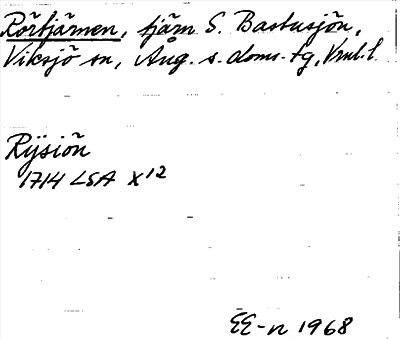 Rörtjärnen, tjärn S. Bastusjön,
Viksjö sn, Ång. s. doms. tg, Vnl. l.
Rÿsiön
1714 LSA X12
EE-n 1968